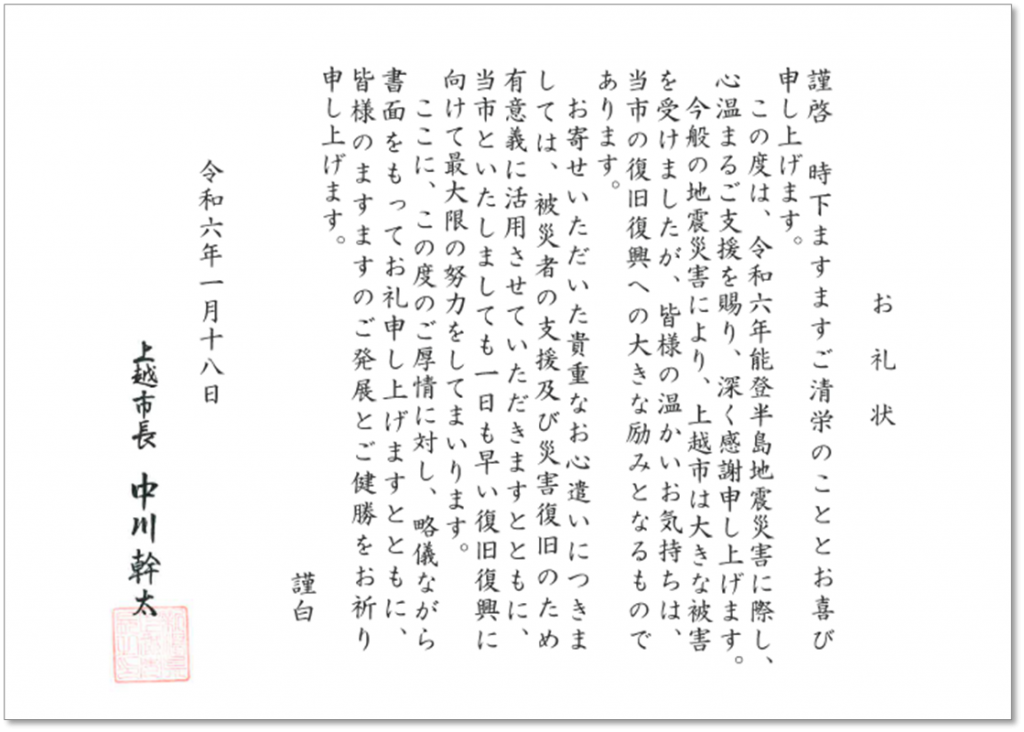 お礼状
謹啓　時下ますますご清栄のこととお喜び
申し上げます。
　この度は、令和六年能登半島地震災害に際し、
心温まるご支援を賜り、深く感謝申し上げます。
　今般の地震災害により、上越市は大きな被害
を受けましたが、皆様の温かいお気持ちは、
当市の復旧復興への大きな励みとなるもので
あります。
　お寄せいただいた貴重なお心遣いにつきま
しては、被災者の支援及び災害復旧のため
有意義に活用させていただきますとともに、
当市といたしましても一日も早い復旧復興に
向けて最大限の努力をしてまいります。
　ここに、この度のご厚情に対し、略儀ながら
書面をもってお礼申し上げますとともに、
皆様のますますのご発展とご健勝をお祈り
申し上げます。
謹白
令和六年一月十八日
上越市長　中川幹太